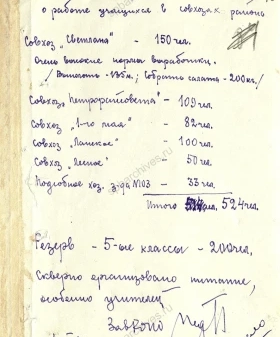 о работе учащихся в совхозах района
Совхоз „Светлана" - 150 чел.
Очень высокие нормы выработки.
Собрать салата - 200 кг/
Совхоз - 109 чел
Совхоз „1-го мая" - 82 чел
Совхоз „Ланское" - 100 чел
Совхоз „Лесное" 50 чел
Подсобное хоз. з-да №03 - 33 чел
Итого 524 чел.
Резерв - 5-ые классы - 200 чел.
Скверно организовано питание,
особенно учителей
ЗавРОНО